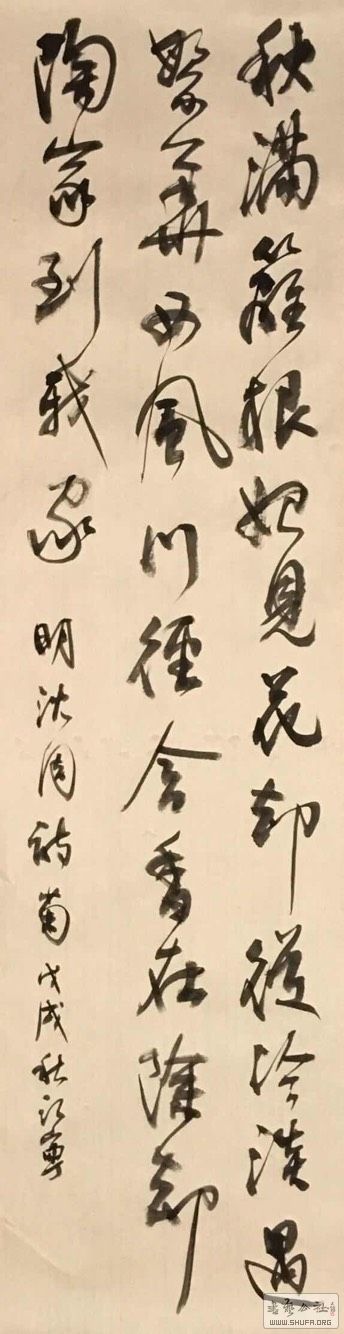 秋滿籬根始見花却從冷淡遇
繁華西風門徑含香在除却
陶家到我家 明沈周詩菊 戊戌秋
書法公社
WWW.SHUFA.ORG